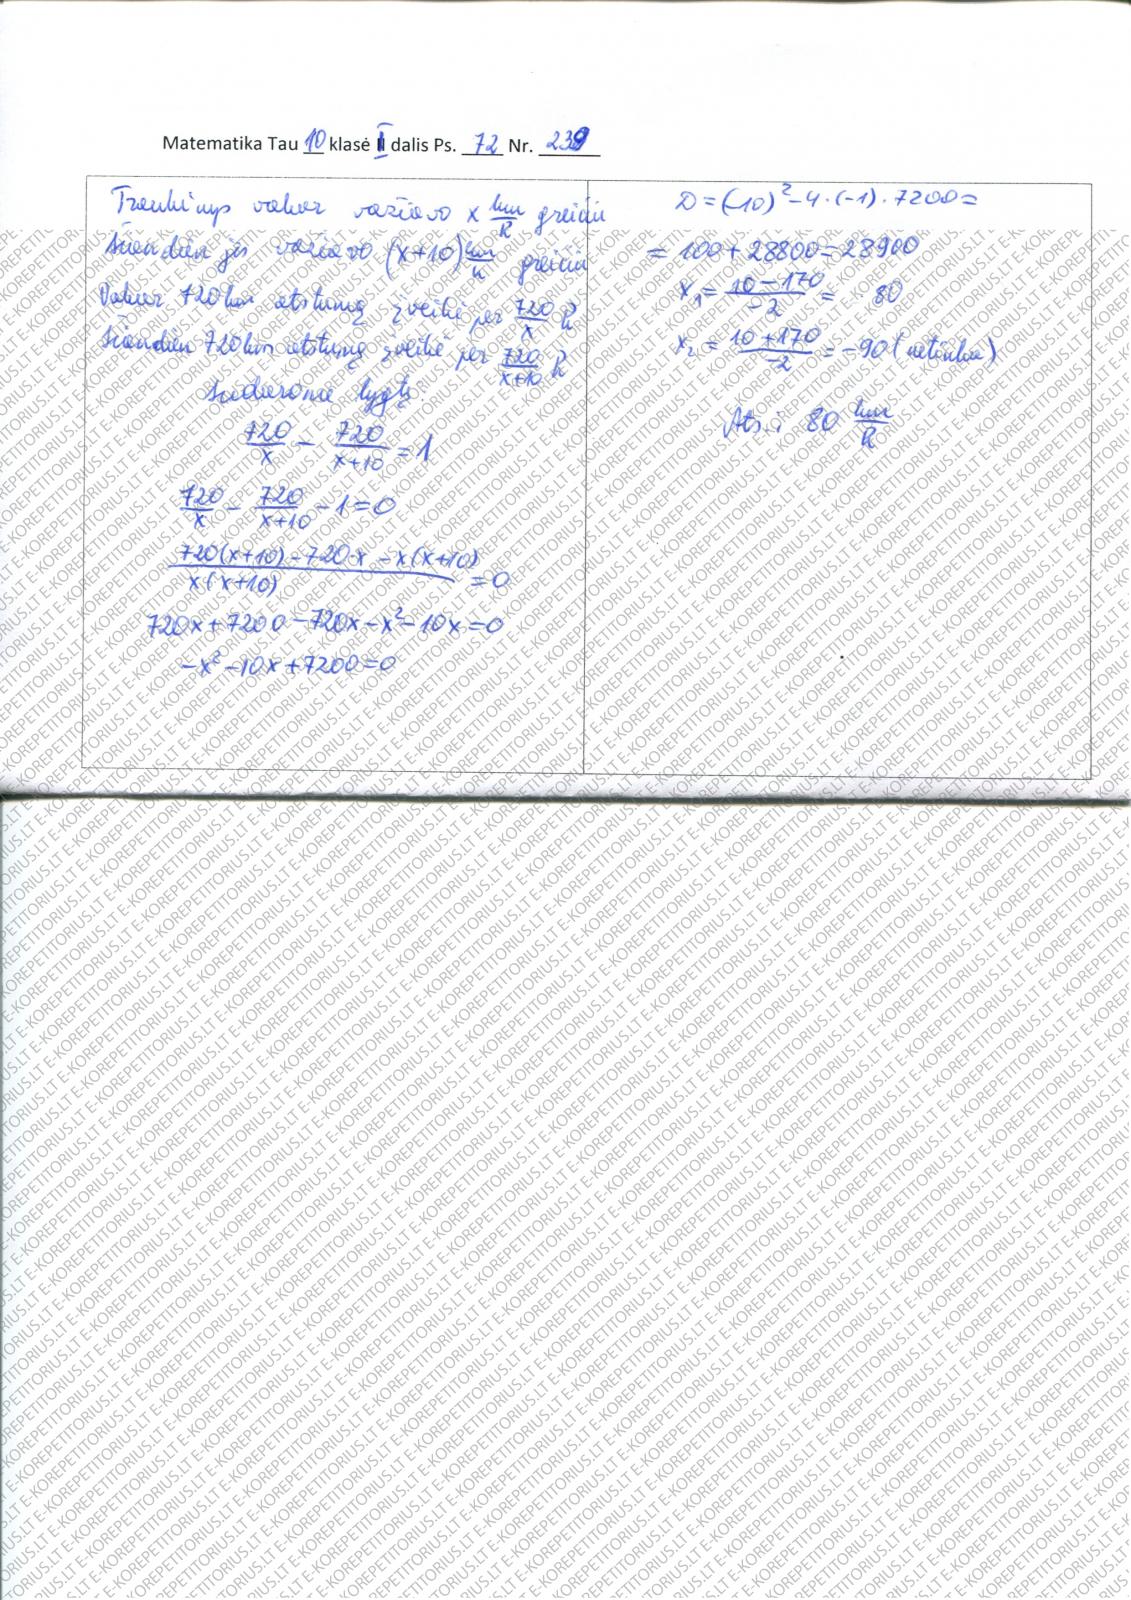 Matematika Tau 10 klasė II dalis Ps. 72 Nr. 239
Traukinys vakar važiavo x km/h greičiu
Šiandien jis važiavo (x+10) km/h greičiu
Vakar 720 km atstumą įveikė per 720/x h
Šiandien 720 km atstumą įveikė per 720/(x+10) h
Sudarome lygtį:
720/x - 720/(x+10) = 1
720/x - 720/(x+10) - 1 = 0
(720(x+10) - 720·x - x(x+10))/(x(x+10)) = 0
720x + 7200 - 720x - x² - 10x = 0
-x² - 10x + 7200 = 0
D = (-10)² - 4·(-1)·7200 =
= 100 + 28800 = 28900
x₁ = (10-170)/-2 = 80
x₂ = (10+170)/-2 = -90 (netinka)
Ats.: 80 km/h
E-KOREPETITORIUS.LT